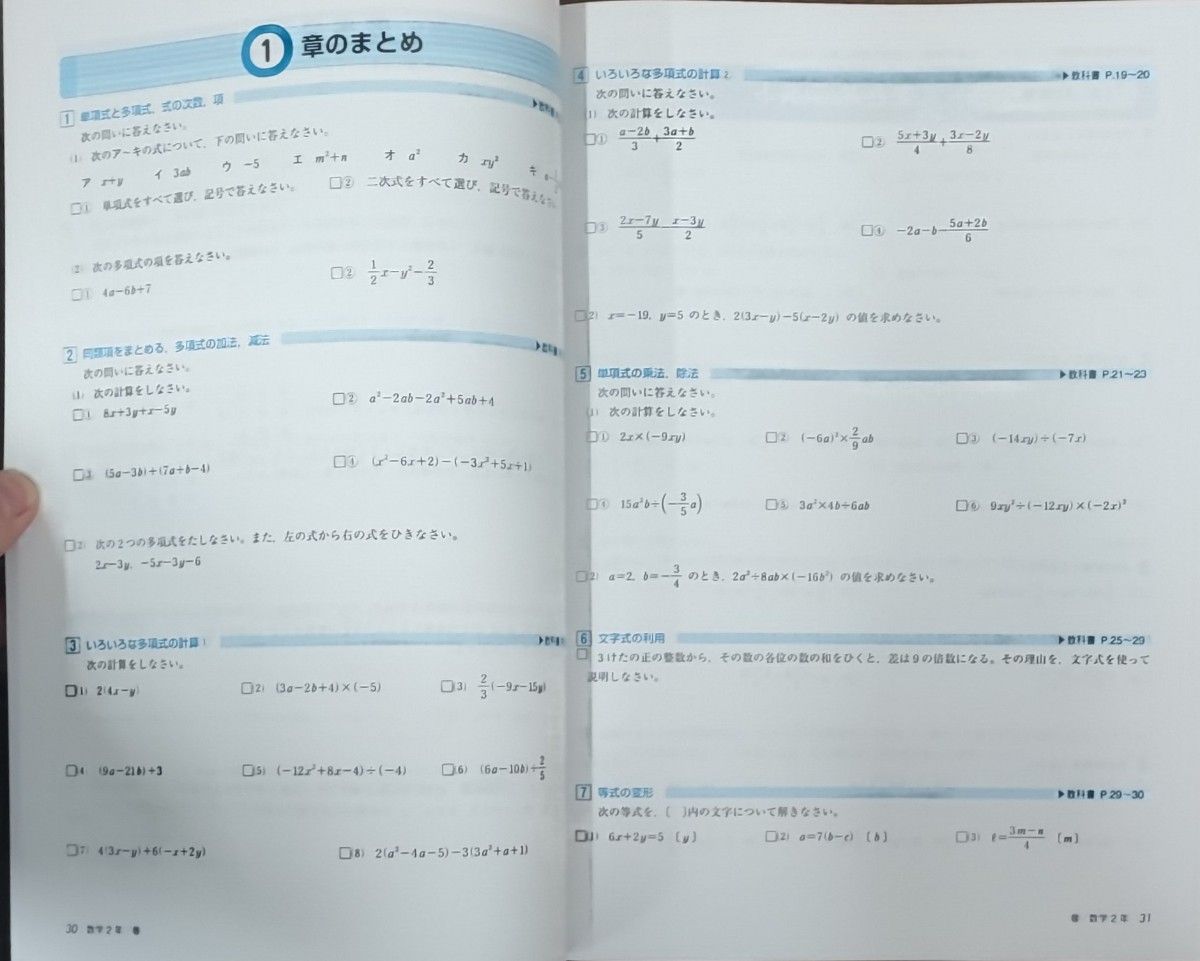 1 章のまとめ
1 単項式と多項式，式の次数，項 ▶教科
次の問いに答えなさい。
(1) 次のア〜キの式について，下の問いに答えなさい。
ア x+y イ 3ab ウ −5 エ m²+n オ a² カ xy² キ
□① 単項式をすべて選び，記号で答えなさい。 □② 二次式をすべて選び，記号で答えなさ
(2) 次の多項式の項を答えなさい。
□① 4a−6b+7 □② 1/2 x−y²−2/3
2 同類項をまとめる，多項式の加法，減法 ▶教科
次の問いに答えなさい。
(1) 次の計算をしなさい。
□① 8x+3y+x−5y □② a²−2ab−2a²+5ab+4
□③ (5a−3b)+(7a+b−4) □④ (x²−6x+2)−(−3x²+5x+1)
□(2) 次の2つの多項式をたしなさい。また，左の式から右の式をひきなさい。
2x−3y，−5x−3y−6
3 いろいろな多項式の計算1 ▶教科書
次の計算をしなさい。
□(1) 2(4x−y) □(2) (3a−2b+4)×(−5) □(3) 2/3(−9x−15y)
□(4) (9a−21b)÷3 □(5) (−12x²+8x−4)÷(−4) □(6) (6a−10b)÷2/5
□(7) 4(3x−y)+6(−x+2y) □(8) 2(a²−4a−5)−3(3a²+a+1)
30 数学2年
4 いろいろな多項式の計算2 ▶教科書 P.19〜20
次の問いに答えなさい。
(1) 次の計算をしなさい。
□① (a−2b)/3+(3a+b)/2 □② (5x+3y)/4+(3x−2y)/8
□③ (2x−7y)/5−(x−3y)/2 □④ −2a−b−(5a+2b)/6
□(2) x=−19，y=5 のとき，2(3x−y)−5(x−2y) の値を求めなさい。
5 単項式の乗法，除法 ▶教科書 P.21〜23
次の問いに答えなさい。
(1) 次の計算をしなさい。
□① 2x×(−9xy) □② (−6a)²×2/9 ab □③ (−14xy)÷(−7x)
□④ 15a²b÷(−3/5 a) □⑤ 3a²×4b÷6ab □⑥ 9xy²÷(−12xy)×(−2x)²
□(2) a=2，b=−3/4 のとき，2a²÷8ab×(−16b²) の値を求めなさい。
6 文字式の利用 ▶教科書 P.25〜29
□ 3けたの正の整数から，その数の各位の数の和をひくと，差は9の倍数になる。その理由を，文字式を使って
説明しなさい。
7 等式の変形 ▶教科書 P.29〜30
次の等式を，〔 〕内の文字について解きなさい。
□(1) 6x+2y=5 〔y〕 □(2) a=7(b−c) 〔b〕 □(3) ℓ=(3m−n)/4 〔m〕
数学2年 31